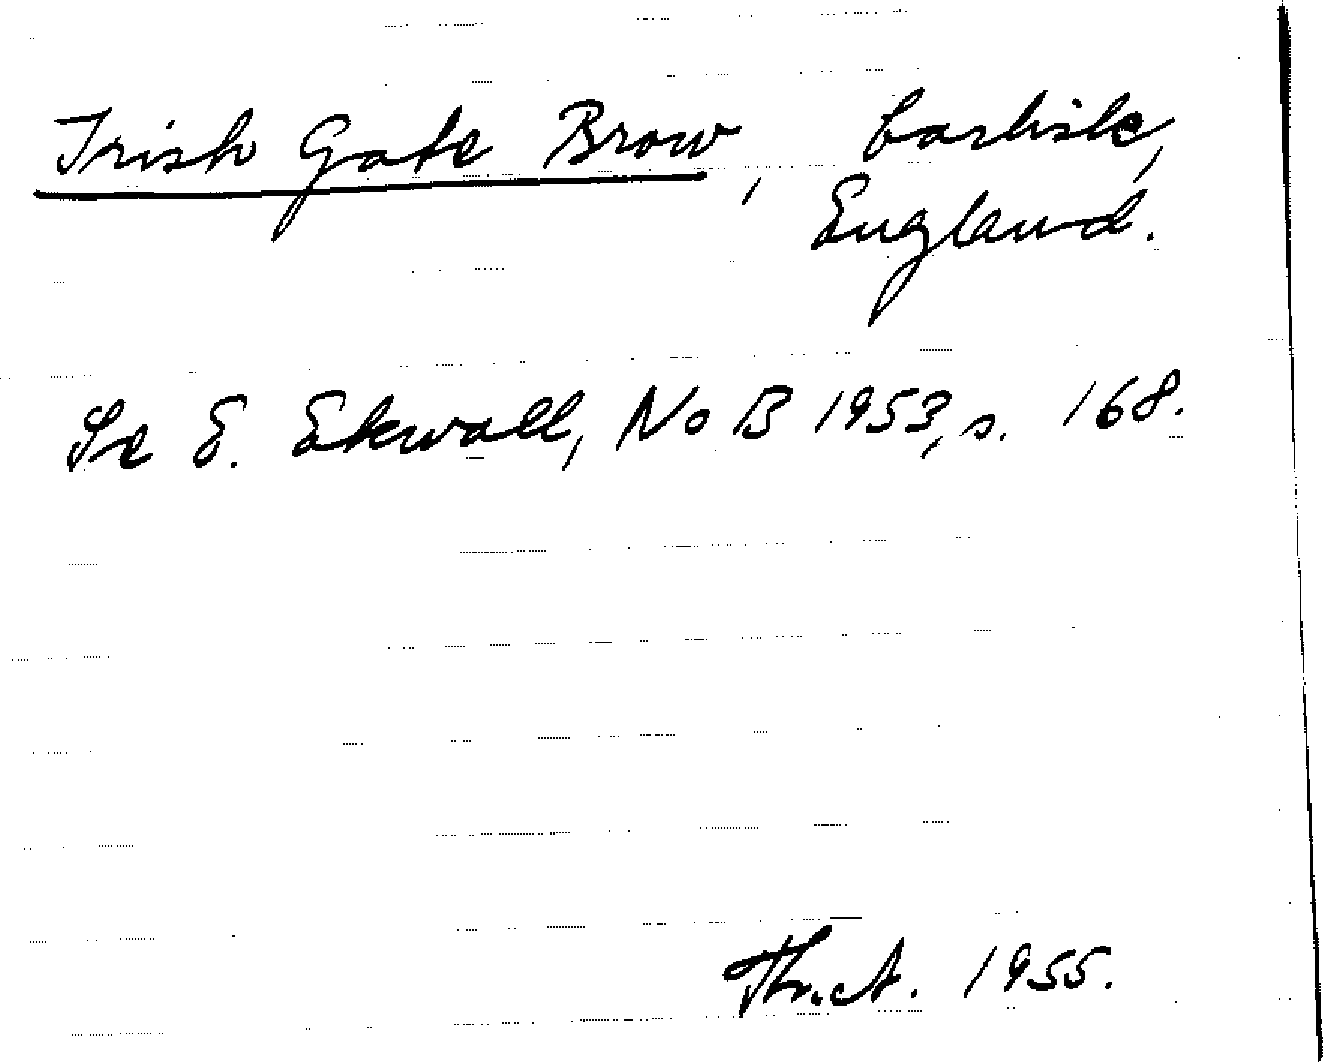 Irish Gate Brow, Carlisle,
England.
Se E. Ekwall, NoB 1953, s. 168.
1955.